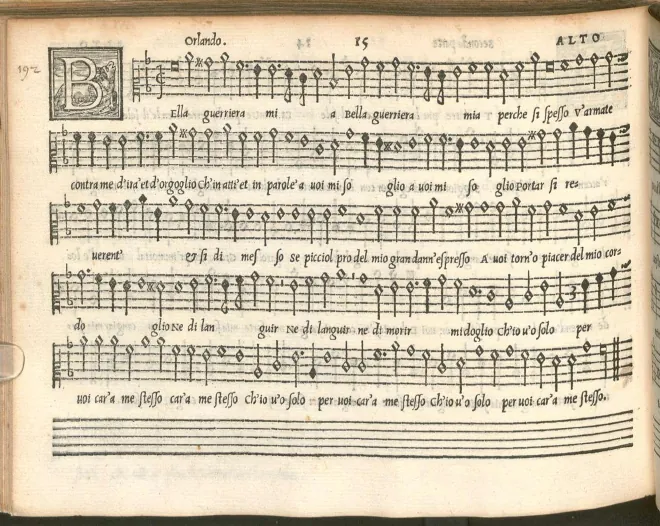 192
Orlando. 15 ALTO
BElla guerriera mi a Bella guerriera mia perche si spesso v'armate
contra me d'ira et d'orgoglio Ch'in atti et in parole a uoi mi so glio a uoi mi so glio Portar si re-
uerent' et si di mes so se picciol pro del mio gran dann' espresso A uoi torn'o piacer del mio cor-
do glio Ne di lan guir Ne di languir ne di morir mi doglio Ch'io uo solo per
uoi car'a me stesso car'a me stesso Ch'io u'o solo per uoi car'a me stesso Ch'io u'o solo per uoi car'a me stesso.